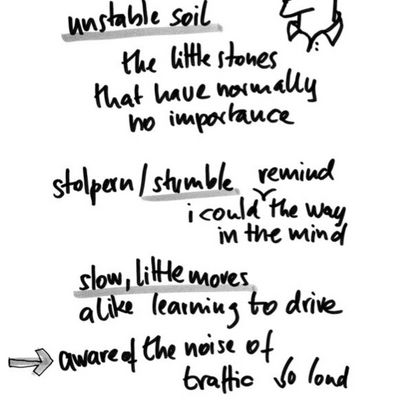 unstable soil
the little stones
that have normally
no importance
stolpern/stumble remind
i could the way
in the mind
slow, little moves
alike learning to drive
aware of the noise of
traffic so loud